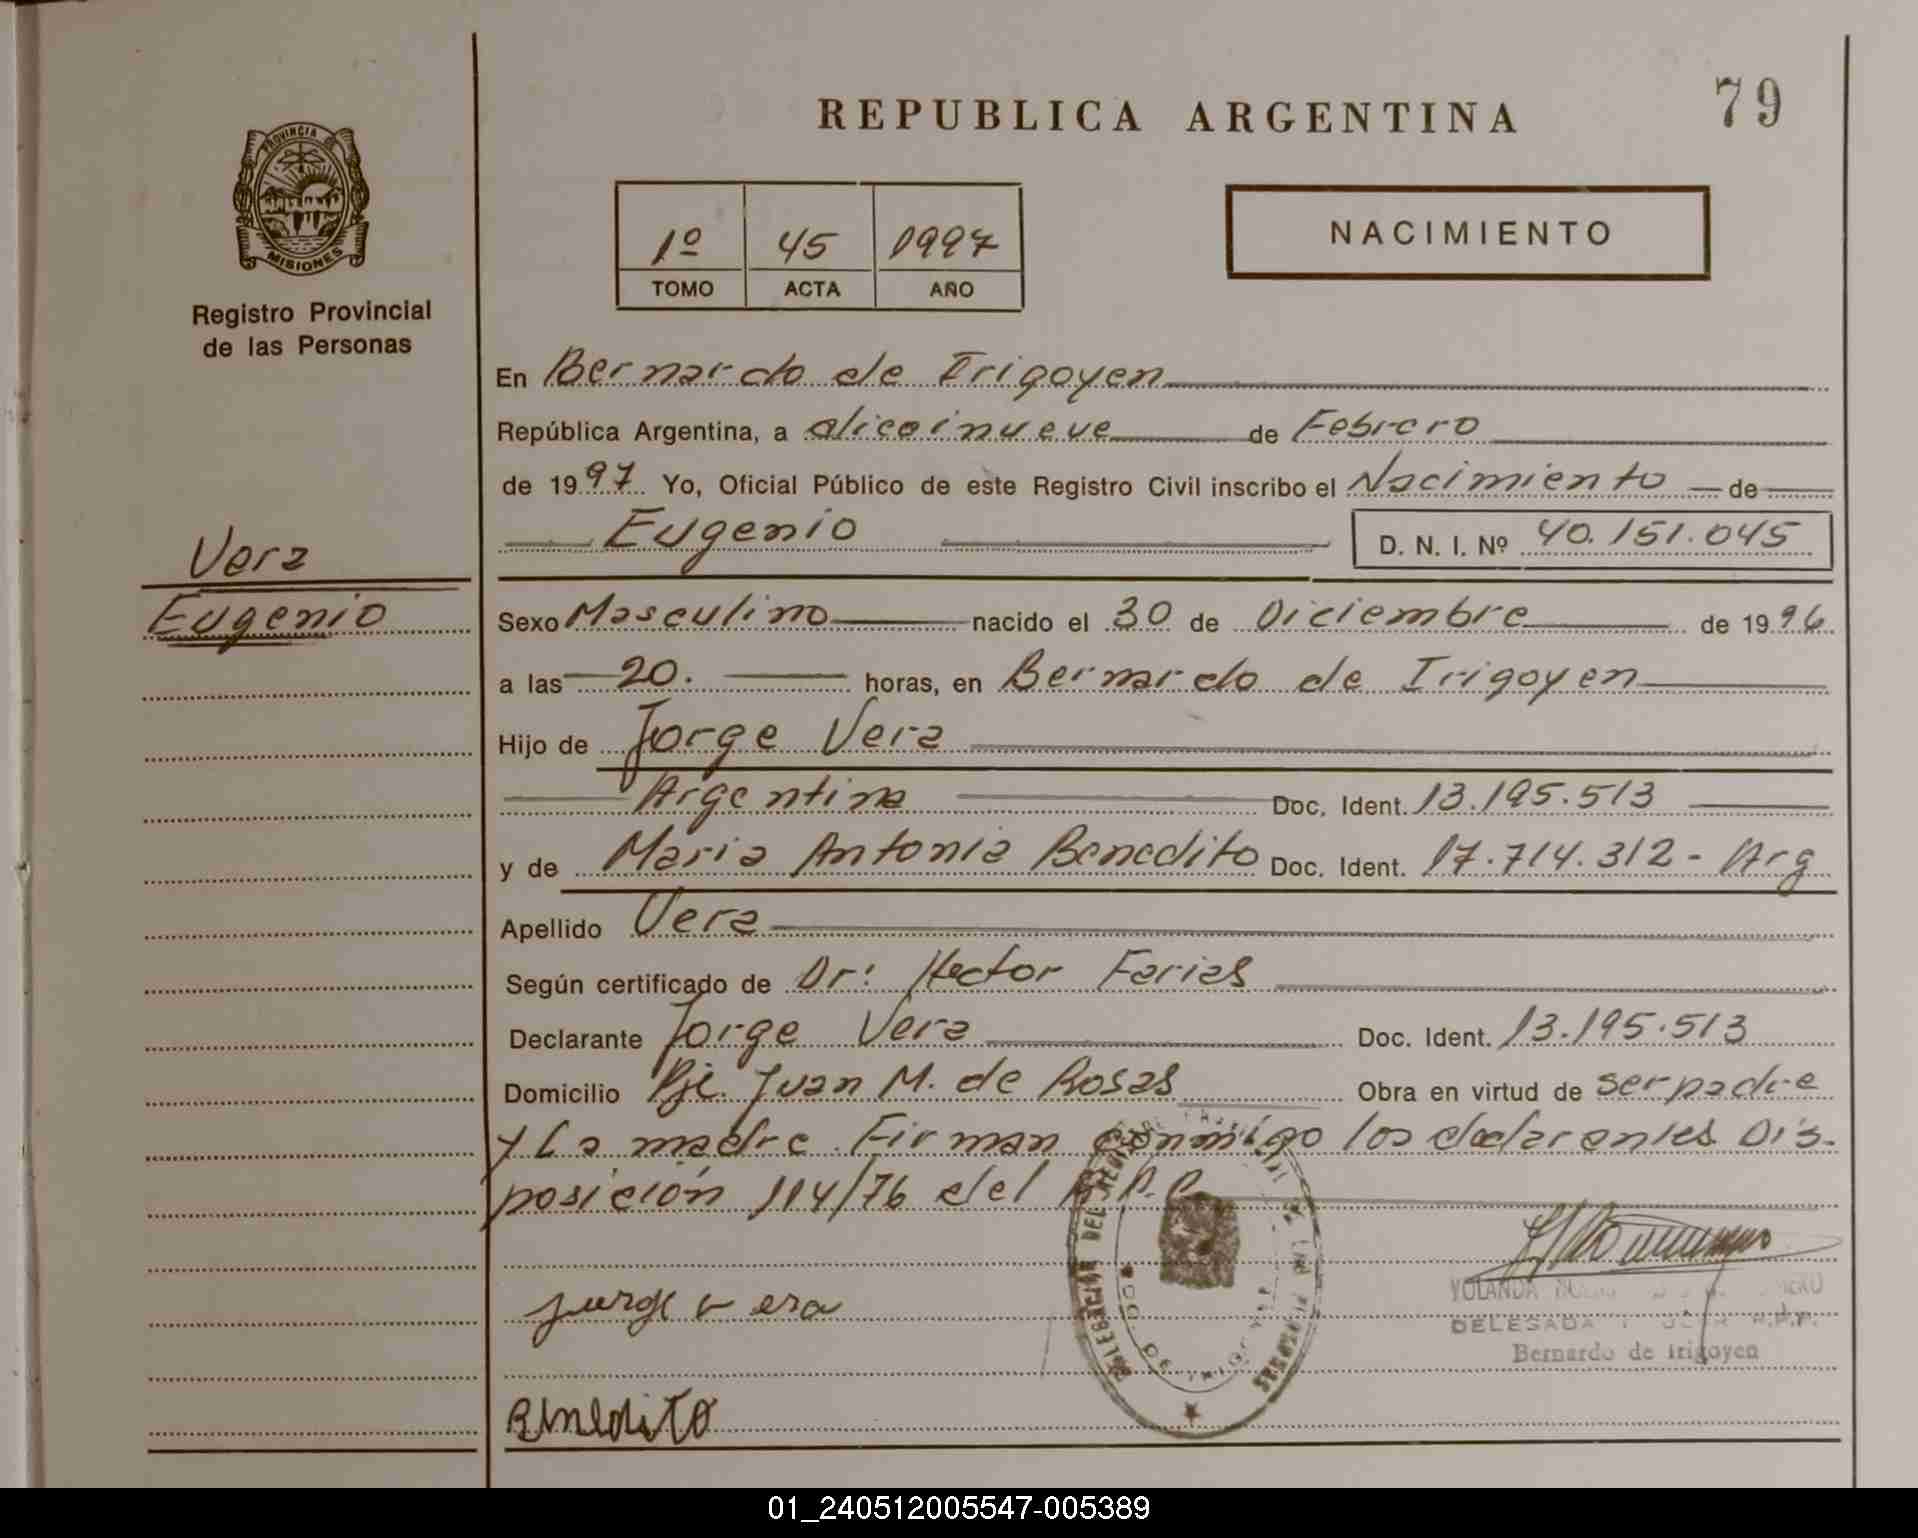 REPUBLICA ARGENTINA
79
PROVINCIA DE
MISIONES
Registro Provincial
de las Personas
1º 45 1997
TOMO ACTA AÑO
NACIMIENTO
En Bernardo de Irigoyen
República Argentina, a diecinueve de Febrero
de 1997 Yo, Oficial Público de este Registro Civil inscribo el Nacimiento de
Eugenio D. N. I. Nº 40.151.045
Vera
Eugenio
Sexo Masculino nacido el 30 de Diciembre de 1996
a las 20. horas, en Bernardo de Irigoyen
Hijo de Jorge Vera
Argentina Doc. Ident. 13.195.513
y de Maria Antonia Benedito Doc. Ident. 17.714.312 - Arg
Apellido Vera
Según certificado de Dr: Hector Farias
Declarante Jorge Vera Doc. Ident. 13.195.513
Domicilio Pje. Juan M. de Rosas Obra en virtud de ser padre
y La madre. Firman conmigo los declarantes Dis-
posición 114/76 del R.P.P.
Jorge vera
YOLANDA
DELEGADA R.P.P.
Bernardo de Irigoyen
Benedito
01_240512005547-005389